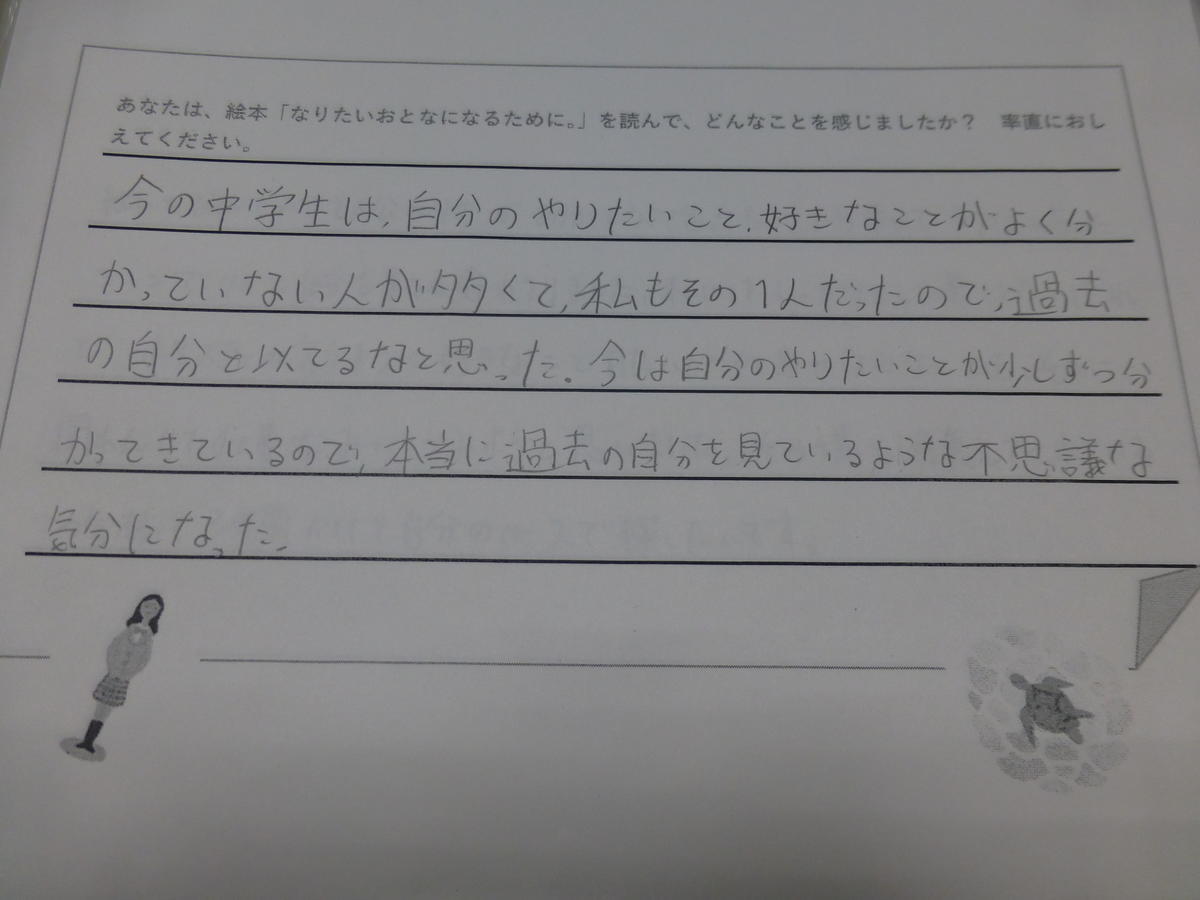 あなたは、絵本「なりたいおとなになるために。」を読んで、どんなことを感じましたか？　率直におし
えてください。
今の中学生は,自分のやりたいこと,好きなことがよく分
かっていない人が多くて,私もその1人だったので,過去
の自分と似てるなと思った.今は自分のやりたいことが少しずつ分
かってきているので,本当に過去の自分を見ているような不思議な
気分になった.